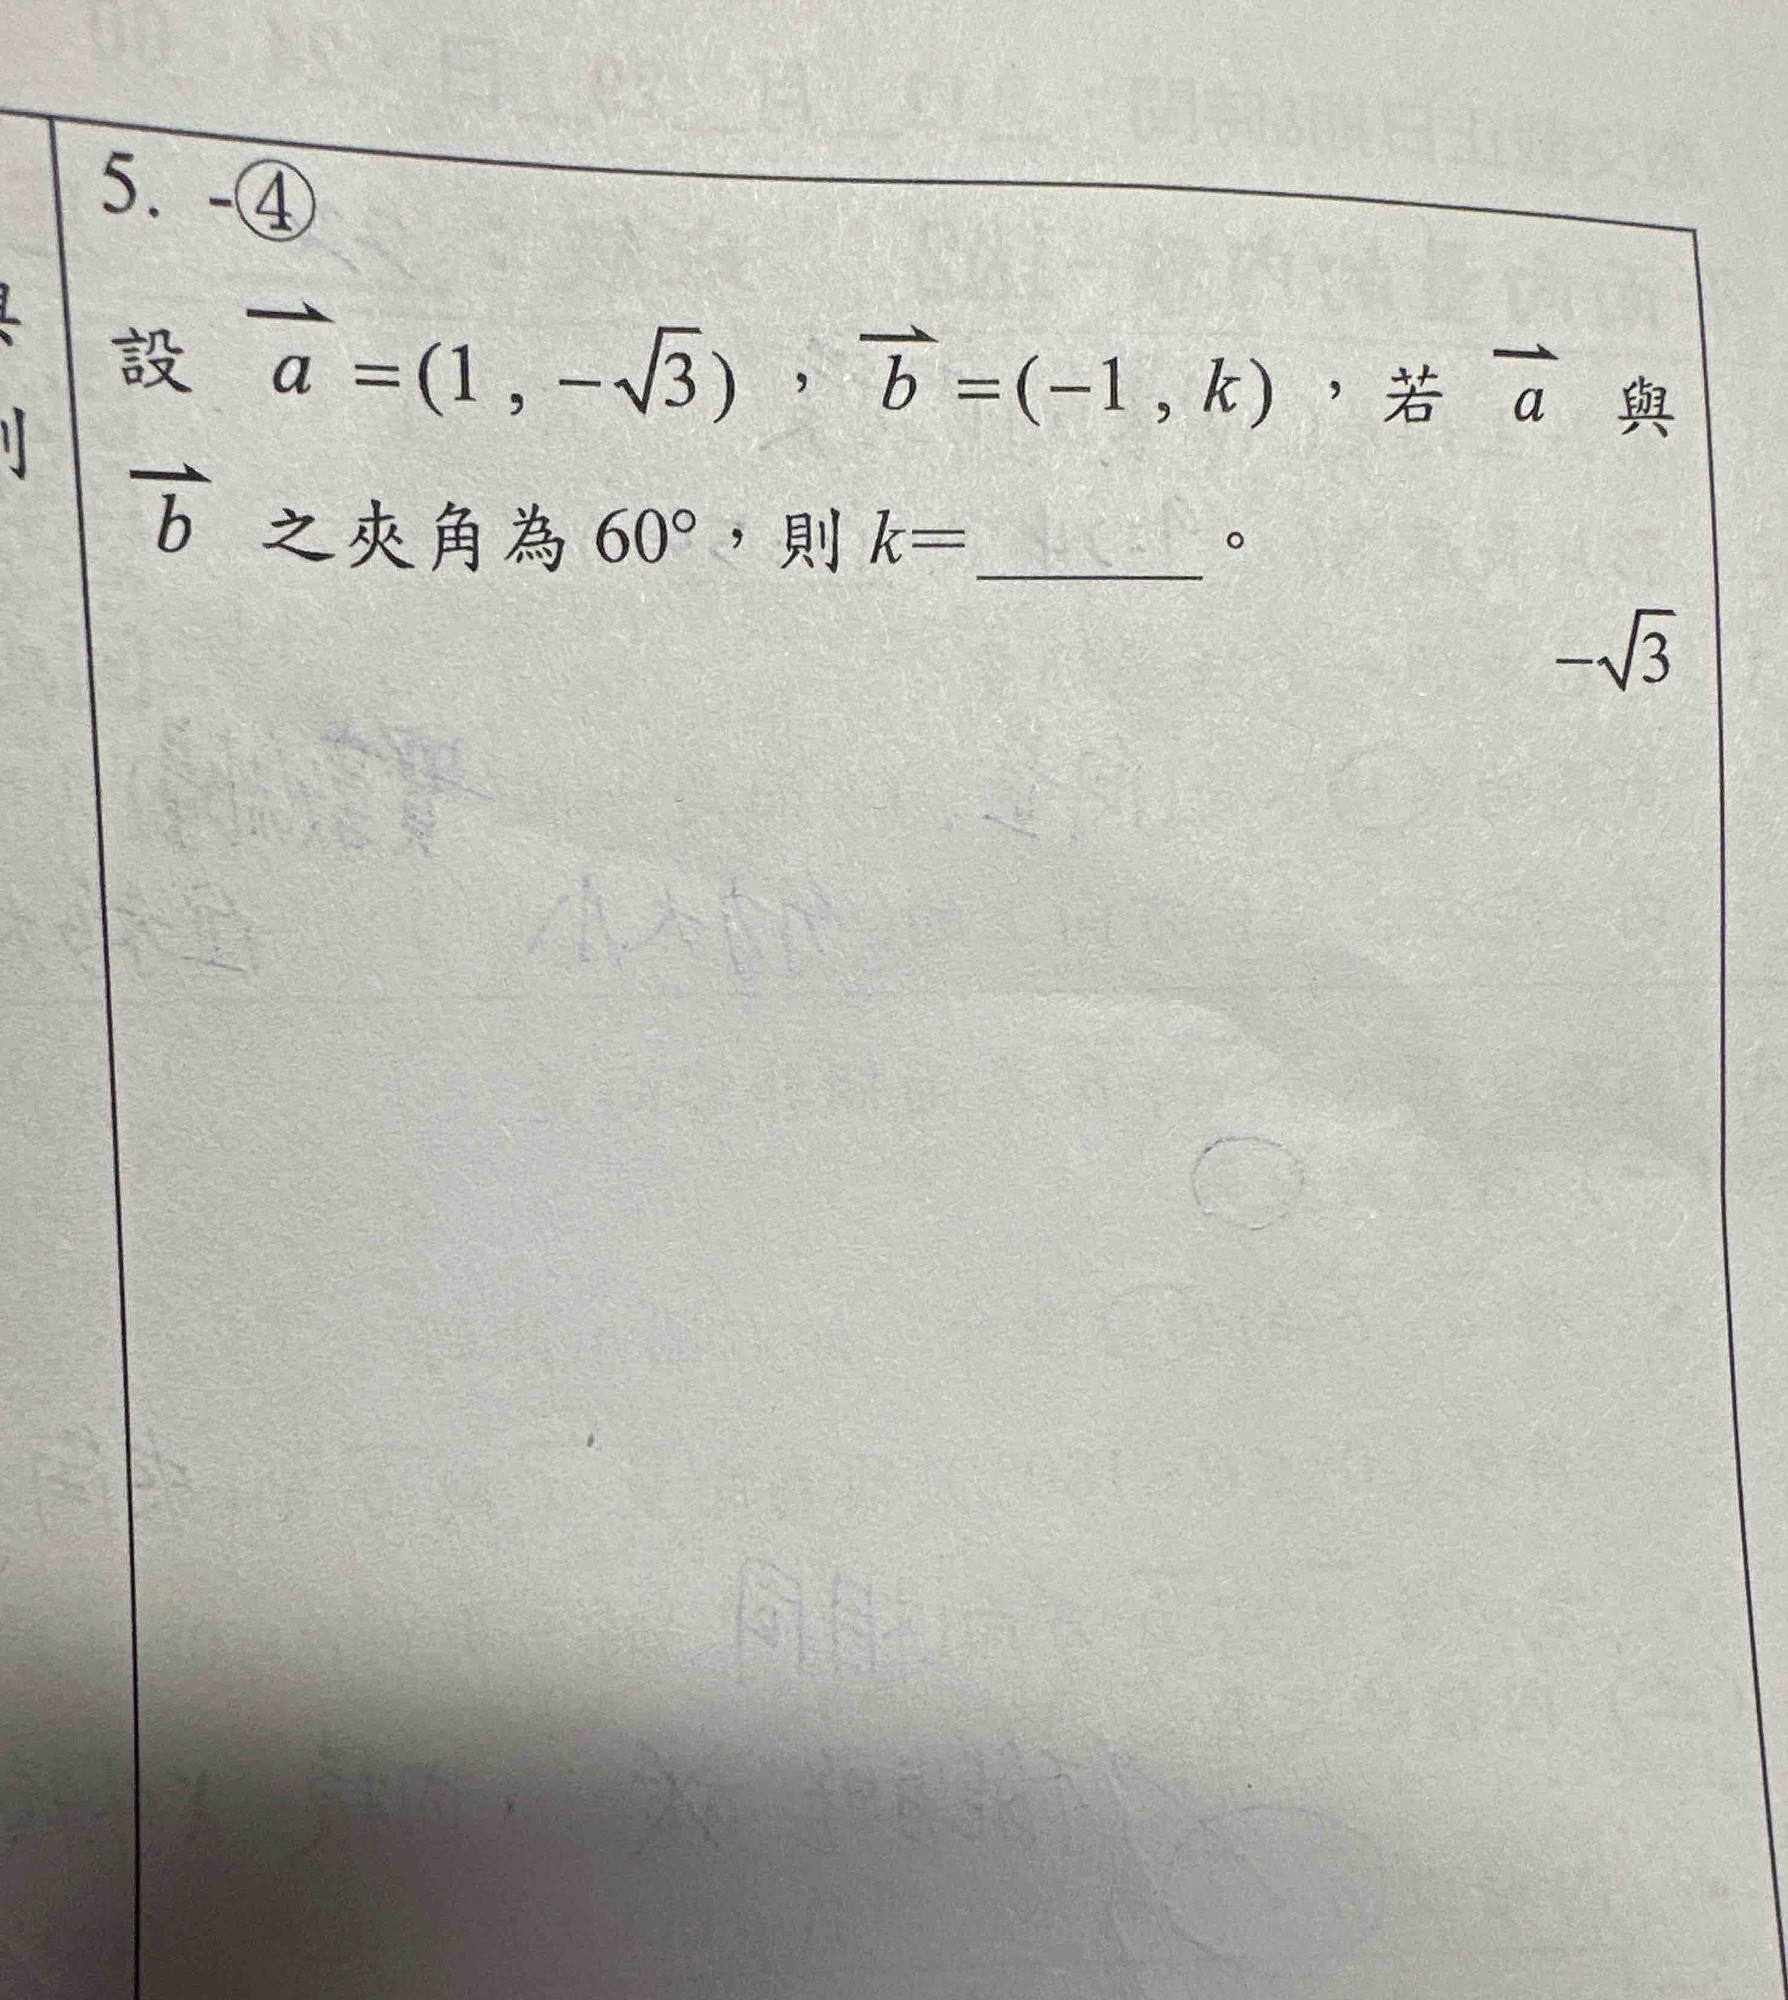 5. -④
設 a⃗ =(1 , −√3) ， b⃗ =(−1 , k) ，若 a⃗ 與
b⃗ 之夾角為 60°，則 k=______。
−√3